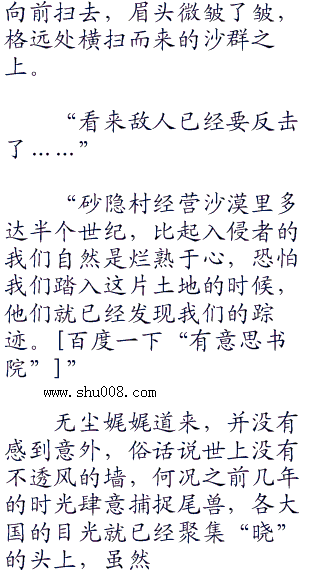 向前扫去，眉头微皱了皱，
格远处横扫而来的沙群之
上。
“看来敌人已经要反击
了……”
“砂隐村经营沙漠里多
达半个世纪，比起入侵者的
我们自然是烂熟于心，恐怕
我们踏入这片土地的时候，
他们就已经发现我们的踪
迹。[百度一下“有意思书
院”]”
www.shu008.com
无尘娓娓道来，并没有
感到意外，俗话说世上没有
不透风的墙，何况之前几年
的时光肆意捕捉尾兽，各大
国的目光就已经聚集“晓”
的头上，虽然